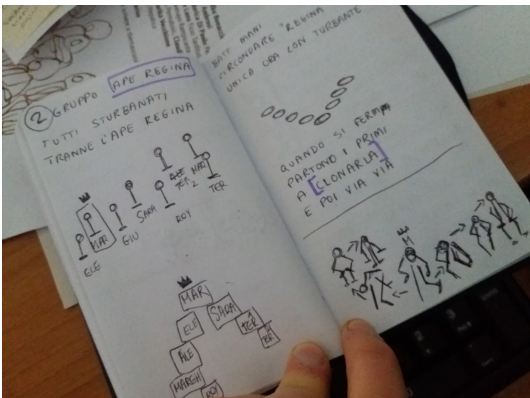 2 GRUPPO APE REGINA
TUTTI STURBANATI
TRANNE L'APE REGINA
MAR
ELE
GIU
SARA
ROY
TER
MAR 2
TER
MARI
SARA
ELE
ALE
MARGH
ROY
TER
BATT MANI
CIRCONDARE "REGINA
UNICA ORA CON TURBANTE
QUANDO SI FERMA
PARTONO I PRIMI
A [CLONARLA]
E POI VIA VIA
M